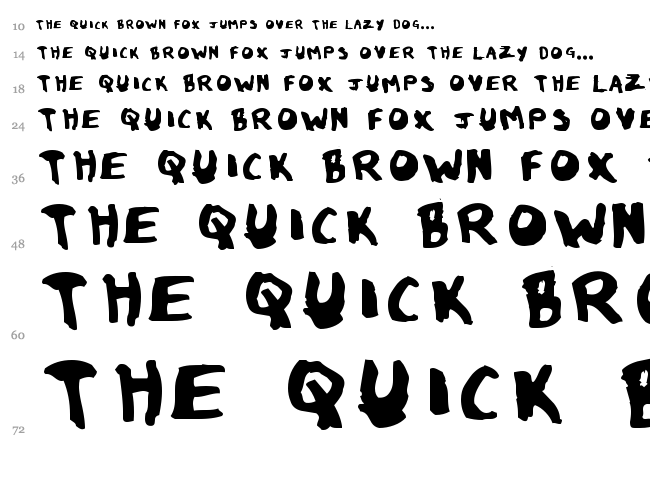 10 THE QUICK BROWN FOX JUMPS OVER THE LAZY DOG...
14 THE QUICK BROWN FOX JUMPS OVER THE LAZY DOG...
18 THE QUICK BROWN FOX JUMPS OVER THE LAZ
24 THE QUICK BROWN FOX JUMPS OVE
36 THE QUICK BROWN FOX
48 THE QUICK BROWN
60 THE QUICK BRO
72 THE QUICK B